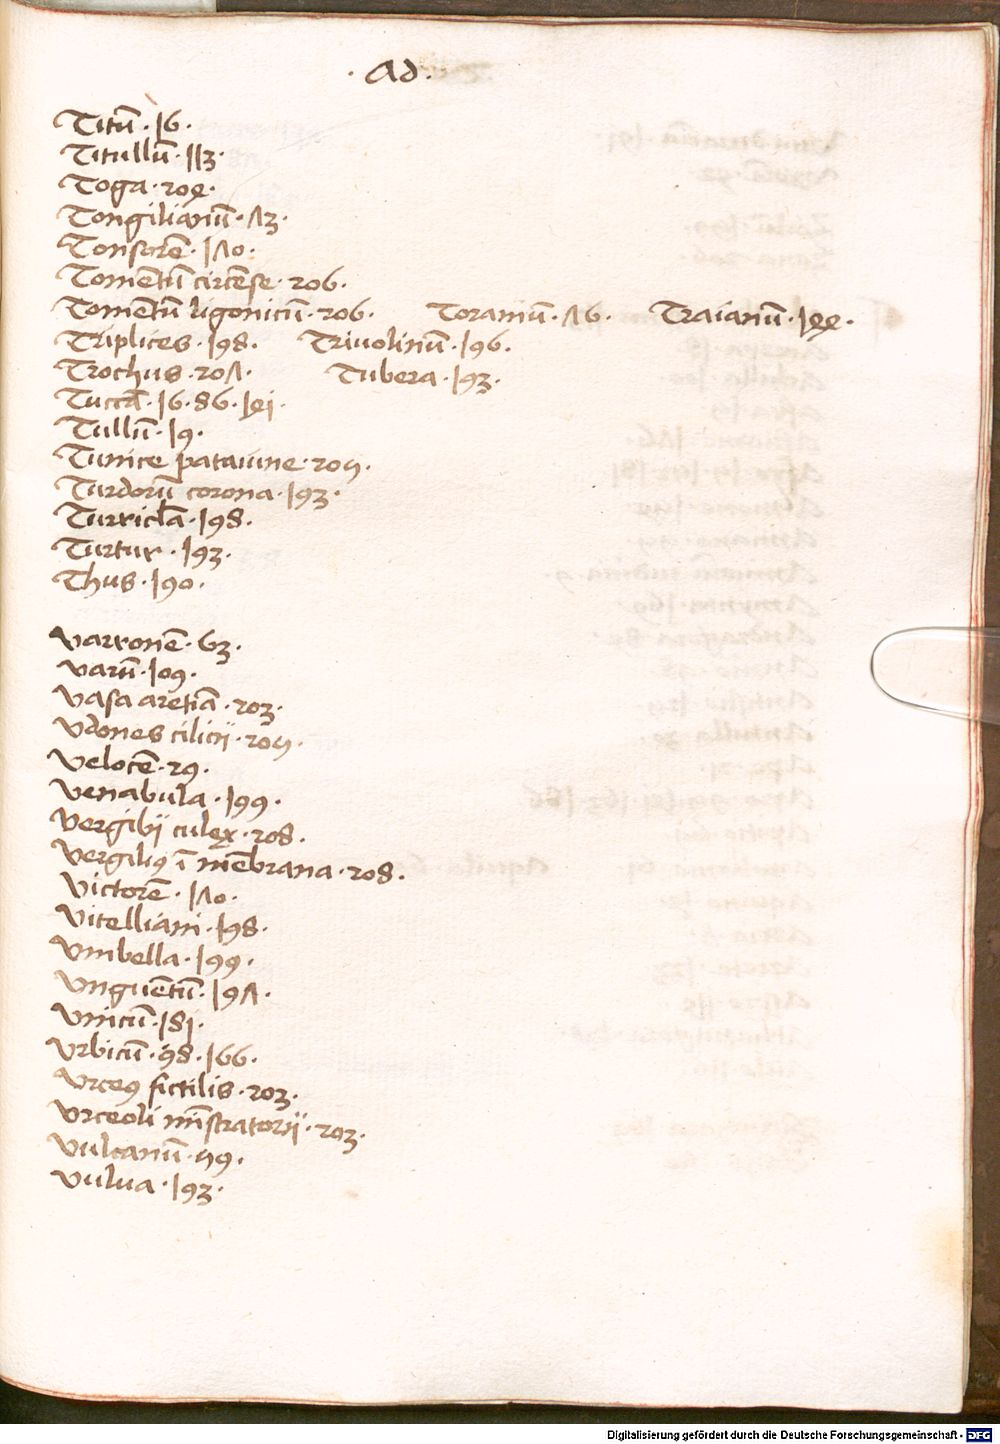 · Ad ·
Titū · 16 ·
Titullū · 113 ·
Toga · 204 ·
Tongilianū · 73 ·
Tonsorē · 170 ·
Tomētū circēse · 206 ·
Tomētū ligonicū · 206 · Toranıū · 76 · Traianū · 144 ·
Triplices · 198 · Triuolinū · 196 ·
Trochus · 207 · Tubera · 193 ·
Tuccā · 16 · 86 · 141 ·
Tullū · 19 ·
Tunice pataiune · 205 ·
Turdorū corona · 193 ·
Turriclā · 198 ·
Turtur · 193 ·
Thus · 190 ·
Varronē · 63 ·
Varū · 109 ·
Vasa aretiā · 203 ·
Vdones cilicij · 205 ·
Velocē · 29 ·
Venabula · 199 ·
Vergibij culex · 208 ·
Vergiliꝯ ī mēbrana · 208 ·
Victorē · 170 ·
Vitelliani · 198 ·
Vmbella · 199 ·
Vnguētū · 197 ·
Vnicū · 181 ·
Vrbicū · 58 · 166 ·
Vrceꝯ fictilis · 203 ·
Vrceoli mīstratorij · 203 ·
Vulcanū · 59 ·
Vulua · 193 ·
Digitalisierung gefördert durch die Deutsche Forschungsgemeinschaft - DFG